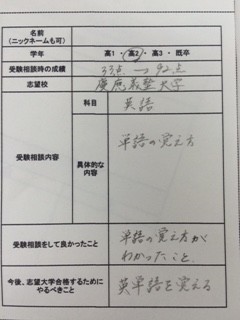 名前
(ニックネームも可)
学年 高1・高2・高3・既卒
受験相談時の成績 33点 → 92点
志望校 慶應義塾大学
受験相談内容
科目 英語
具体的な
内容
単語の覚え方
受験相談をして良かったこと
単語の覚え方が
わかったこと。
今後、志望大学合格するために
やるべきこと
英単語を覚える